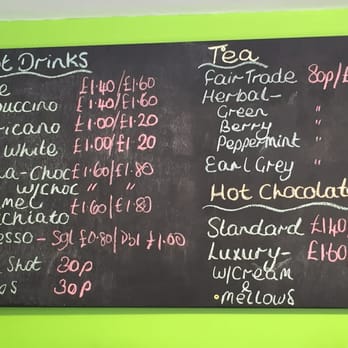 t Drinks
e £1.40/£1.60
puccino £1.40/£1.60
ricano £1.00/£1.20
White £1.00/£1.20
a-Choc £1.60/£1.80
w/choc " "
mel £1.60/£1.80
cchiato
esso - Sgl £0.80/Dbl £1.00
Shot 30p
s 30p
Tea
Fair Trade 80p/£
Herbal-
Green "
Berry "
Peppermint "
Earl Grey "
Hot Chocolat
Standard £1.40
Luxury- £1.60
w/Cream
&
mellows